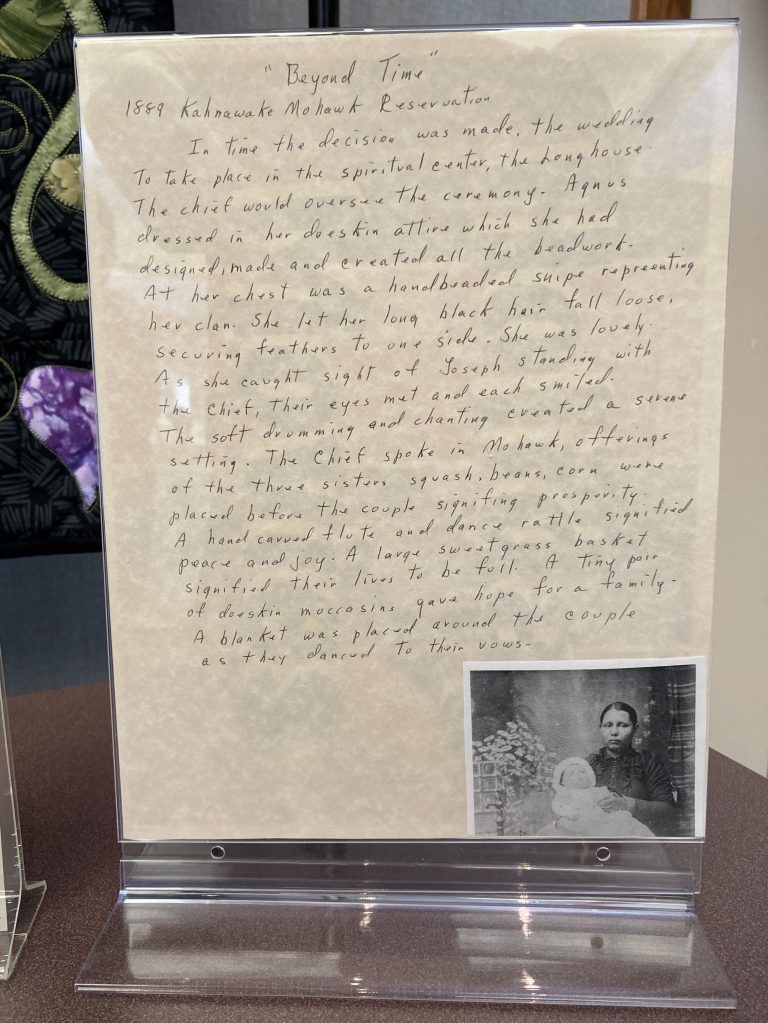 "Beyond Time"
1889 Kahnawake Mohawk Reservation
In time the decision was made, the wedding
To take place in the spiritual center, the Longhouse.
The chief would oversee the ceremony. Agnus
dressed in her doeskin attire which she had
designed, made and created all the beadwork.
At her chest was a handbeaded snipe repreenting
her clan. She let her long black hair fall loose,
securing feathers to one side. She was lovely.
As she caught sight of Joseph standing with
the Chief, their eyes met and each smiled.
The soft drumming and chanting created a serene
setting. The Chief spoke in Mohawk, offerings
of the three sisters squash, beans, corn were
placed before the couple signifing prosperity.
A hand carved flute and dance rattle signified
peace and joy. A large sweetgrass basket
signified their lives to be full. A tiny pair
of doeskin moccasins gave hope for a family.
A blanket was placed around the couple
as they danced to their vows.